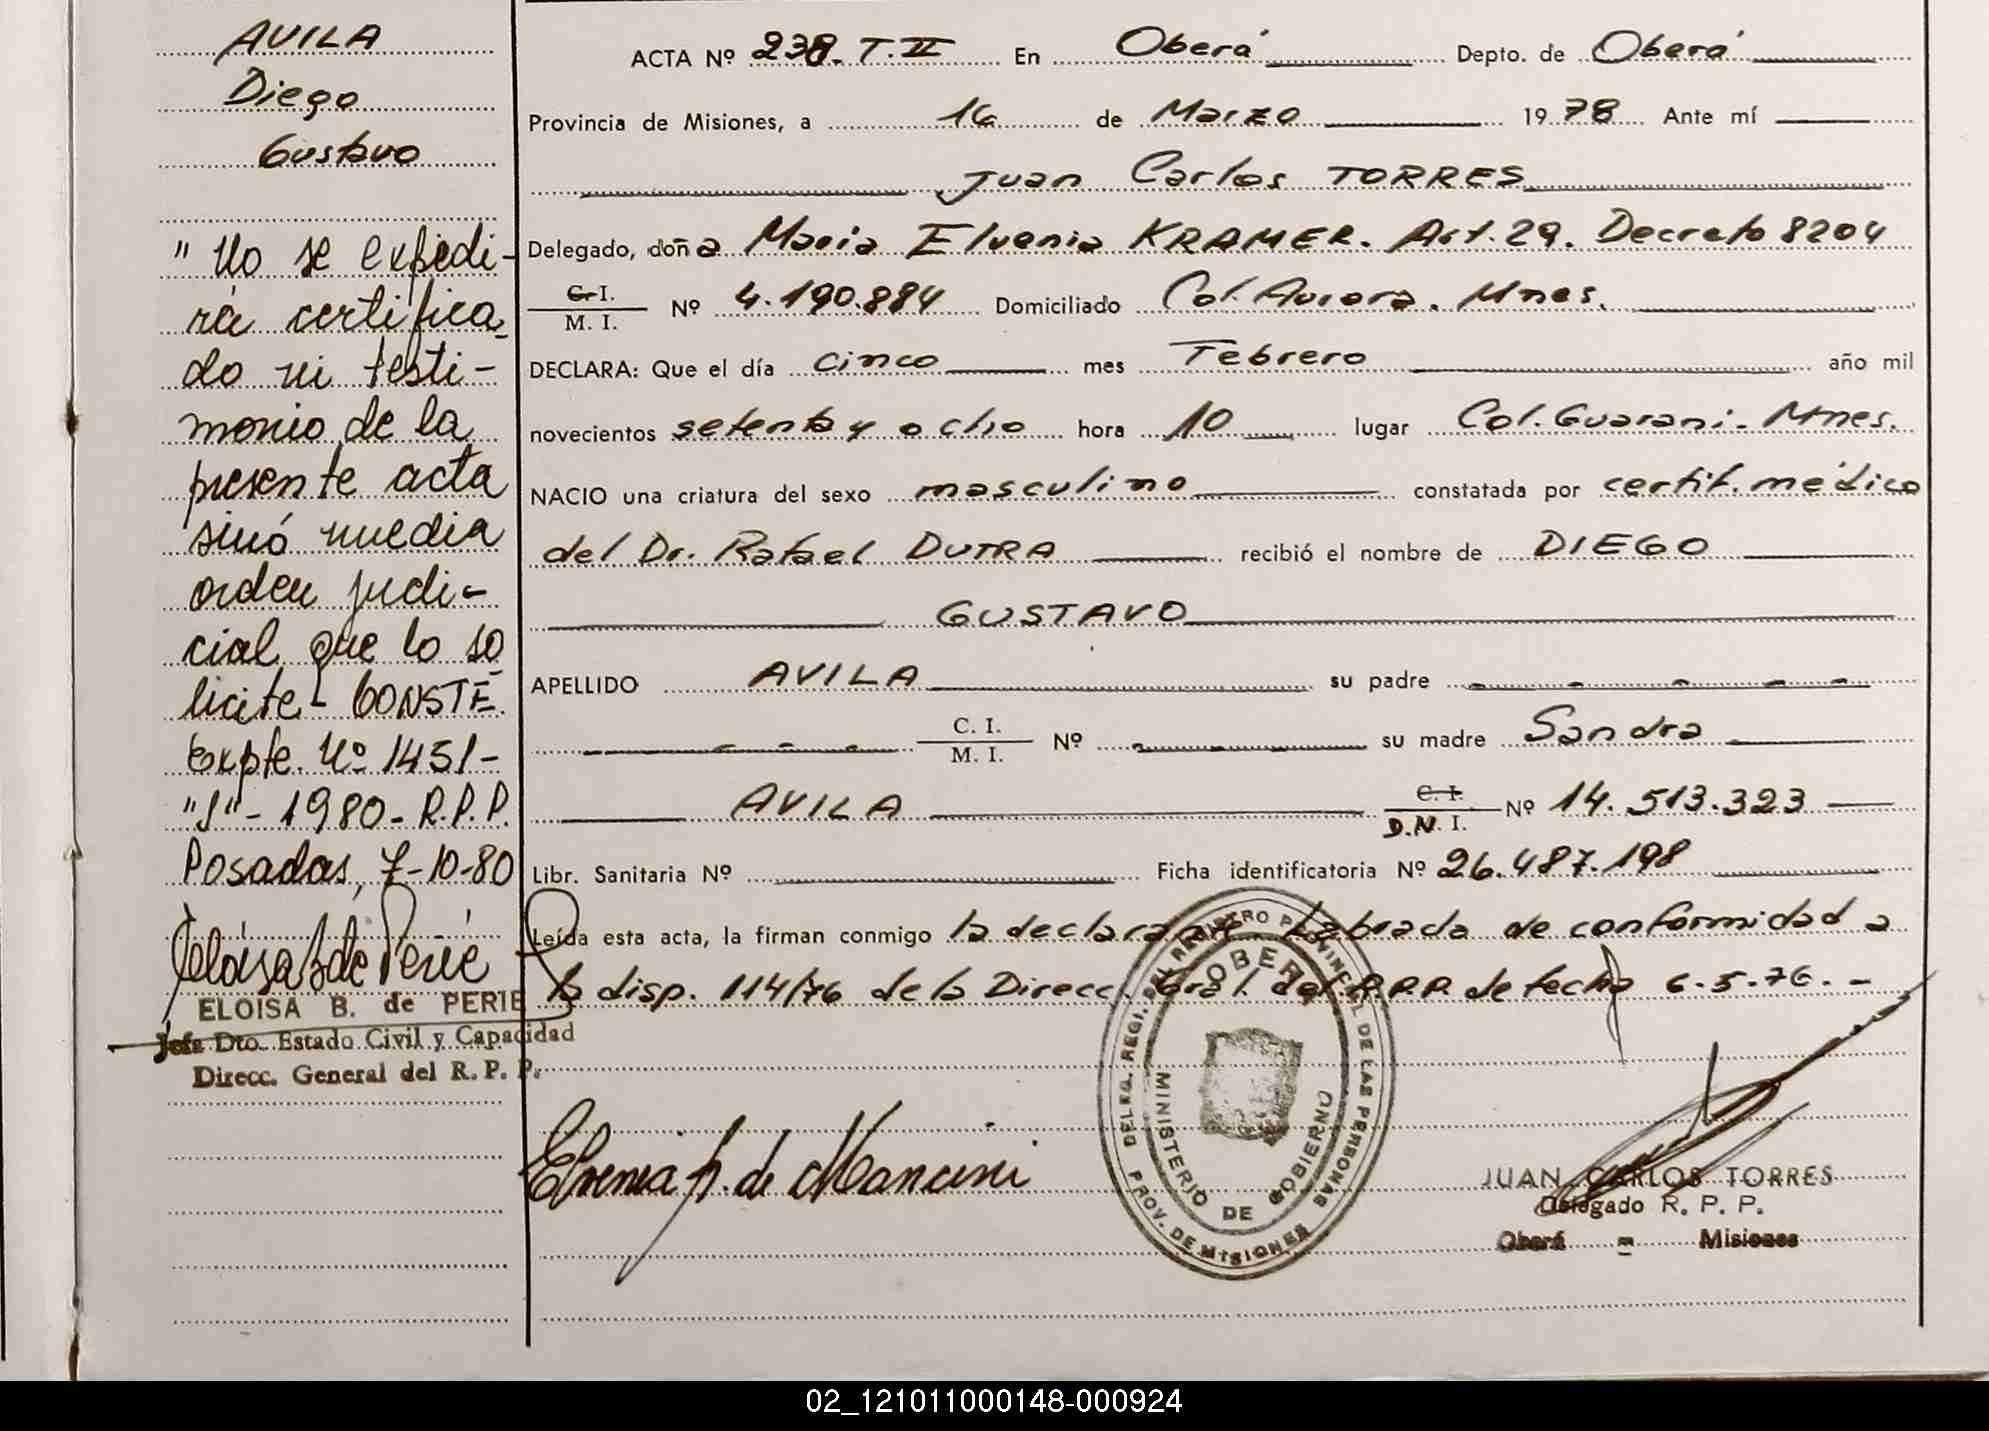 AVILA
Diego
Gustavo
"No se expedi-
rá certifica-
do ni testi-
monio de la
presente acta
sinó media
orden judi-
cial que lo so
licite - CONSTE.
Expte. Nº 1451-
"S" - 1980 - R.P.P.
Posadas, 7-10-80
Eloísa B de Perié
ELOISA B. de PERIE
Jefa Dto. Estado Civil y Capacidad
Direcc. General del R. P. P.
ACTA Nº 238. T. II En Oberá Depto. de Oberá
Provincia de Misiones, a 16 de Marzo 1978 Ante mí
Juan Carlos TORRES
Delegado, doña Maria Elvenia KRAMER. Art. 29. Decreto 8204
C. I.
M. I. Nº 4.190.884 Domiciliado Col. Aurora. Mnes.
DECLARA: Que el día cinco mes Febrero año mil
novecientos setenta y ocho hora 10 lugar Col. Guarani - Mnes.
NACIO una criatura del sexo masculino constatada por certif. médico
del Dr. Rafael DUTRA recibió el nombre de DIEGO
GUSTAVO
APELLIDO AVILA su padre
C. I.
M. I. Nº su madre Sandra
AVILA C. I.
D.N. I. Nº 14.513.323
Libr. Sanitaria Nº Ficha identificatoria Nº 26.487.198
Leída esta acta, la firman conmigo la declarante. Labrada de conformidad a
la disp. 114/76 de la Direcc. Gral. del R.P.P. de fecha 6.5.76. -
DELEG. REGI. DEL REGISTRO PROVINCIAL DE LAS PERSONAS
PROV. DE MISIONES
MINISTERIO DE GOBIERNO
Elvenia K. de Mancini
JUAN CARLOS TORRES
Delegado R. P. P.
Oberá - Misiones
02_121011000148-000924